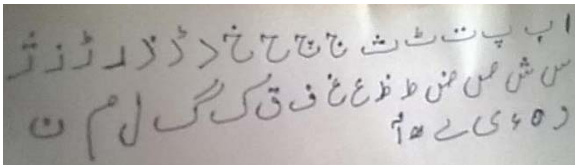 ا ب پ ت ٹ ث ج چ ح خ د ڈ ذ ر ڑ ز ژ
س ش ص ض ط ظ ع غ ف ق ک گ ل م ن
و ہ ء ی ے ھ آ